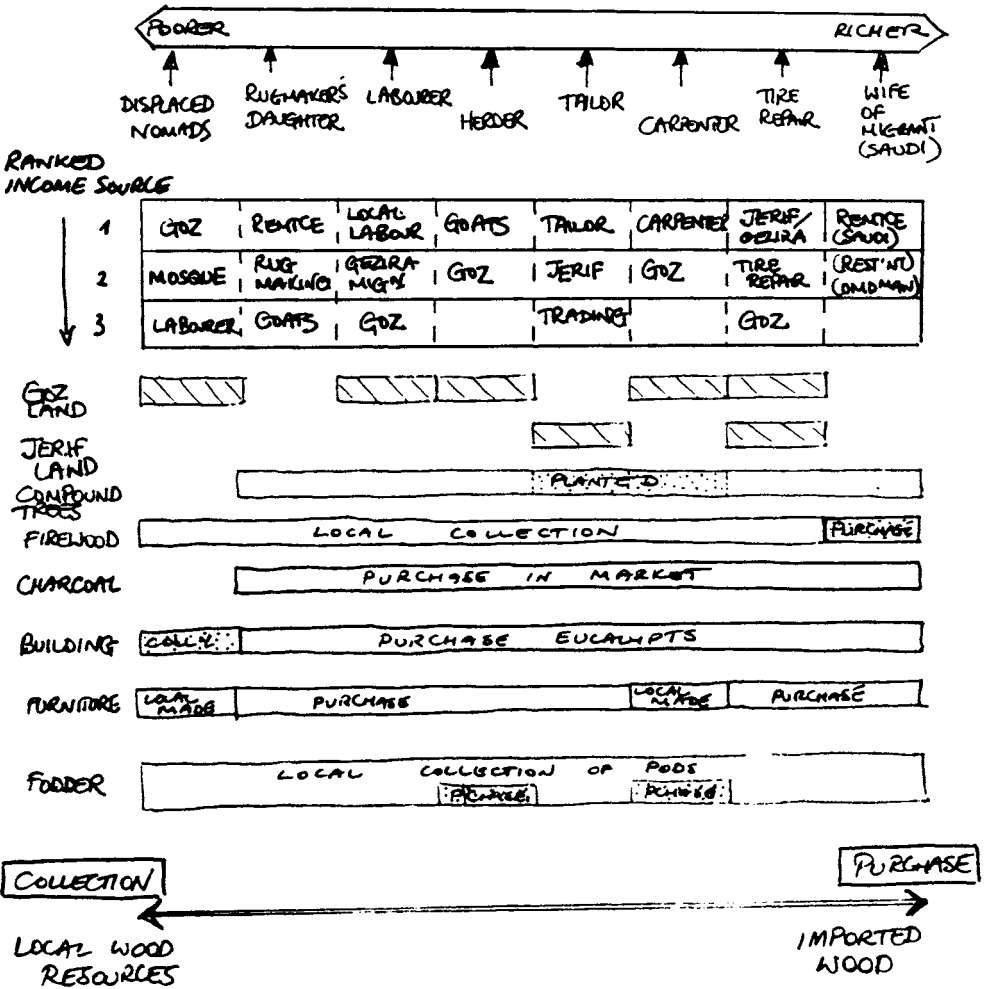 POORER RICHER
DISPLACED NOMADS
RUGMAKER'S DAUGHTER
LABOURER
HERDER
TAILOR
CARPENTER
TIRE REPAIR
WIFE OF MIGRANT (SAUDI)
RANKED
INCOME SOURCE
1 GOZ REMTCE LOCAL LABOUR GOATS TAILOR CARPENTER JERIF/ GEZIRA REMTCE (SAUDI)
2 MOSQUE RUG MAKING GEZIRA MIG'N GOZ JERIF GOZ TIRE REPAIR (REST'NT) (OMDMAN)
3 LABOURER GOATS GOZ TRADING GOZ
GOZ
LAND
JERIF
LAND
COMPOUND PLANTED
TREES
FIREWOOD LOCAL COLLECTION PURCHASE
CHARCOAL PURCHASE IN MARKET
BUILDING PURCHASE EUCALYPTS
FURNITURE LOCAL MADE PURCHASE LOCAL MADE PURCHASE
FODDER LOCAL COLLECTION OF PODS
PCHASE PCHASE
COLLECTION PURCHASE
LOCAL WOOD
RESOURCES
IMPORTED
WOOD